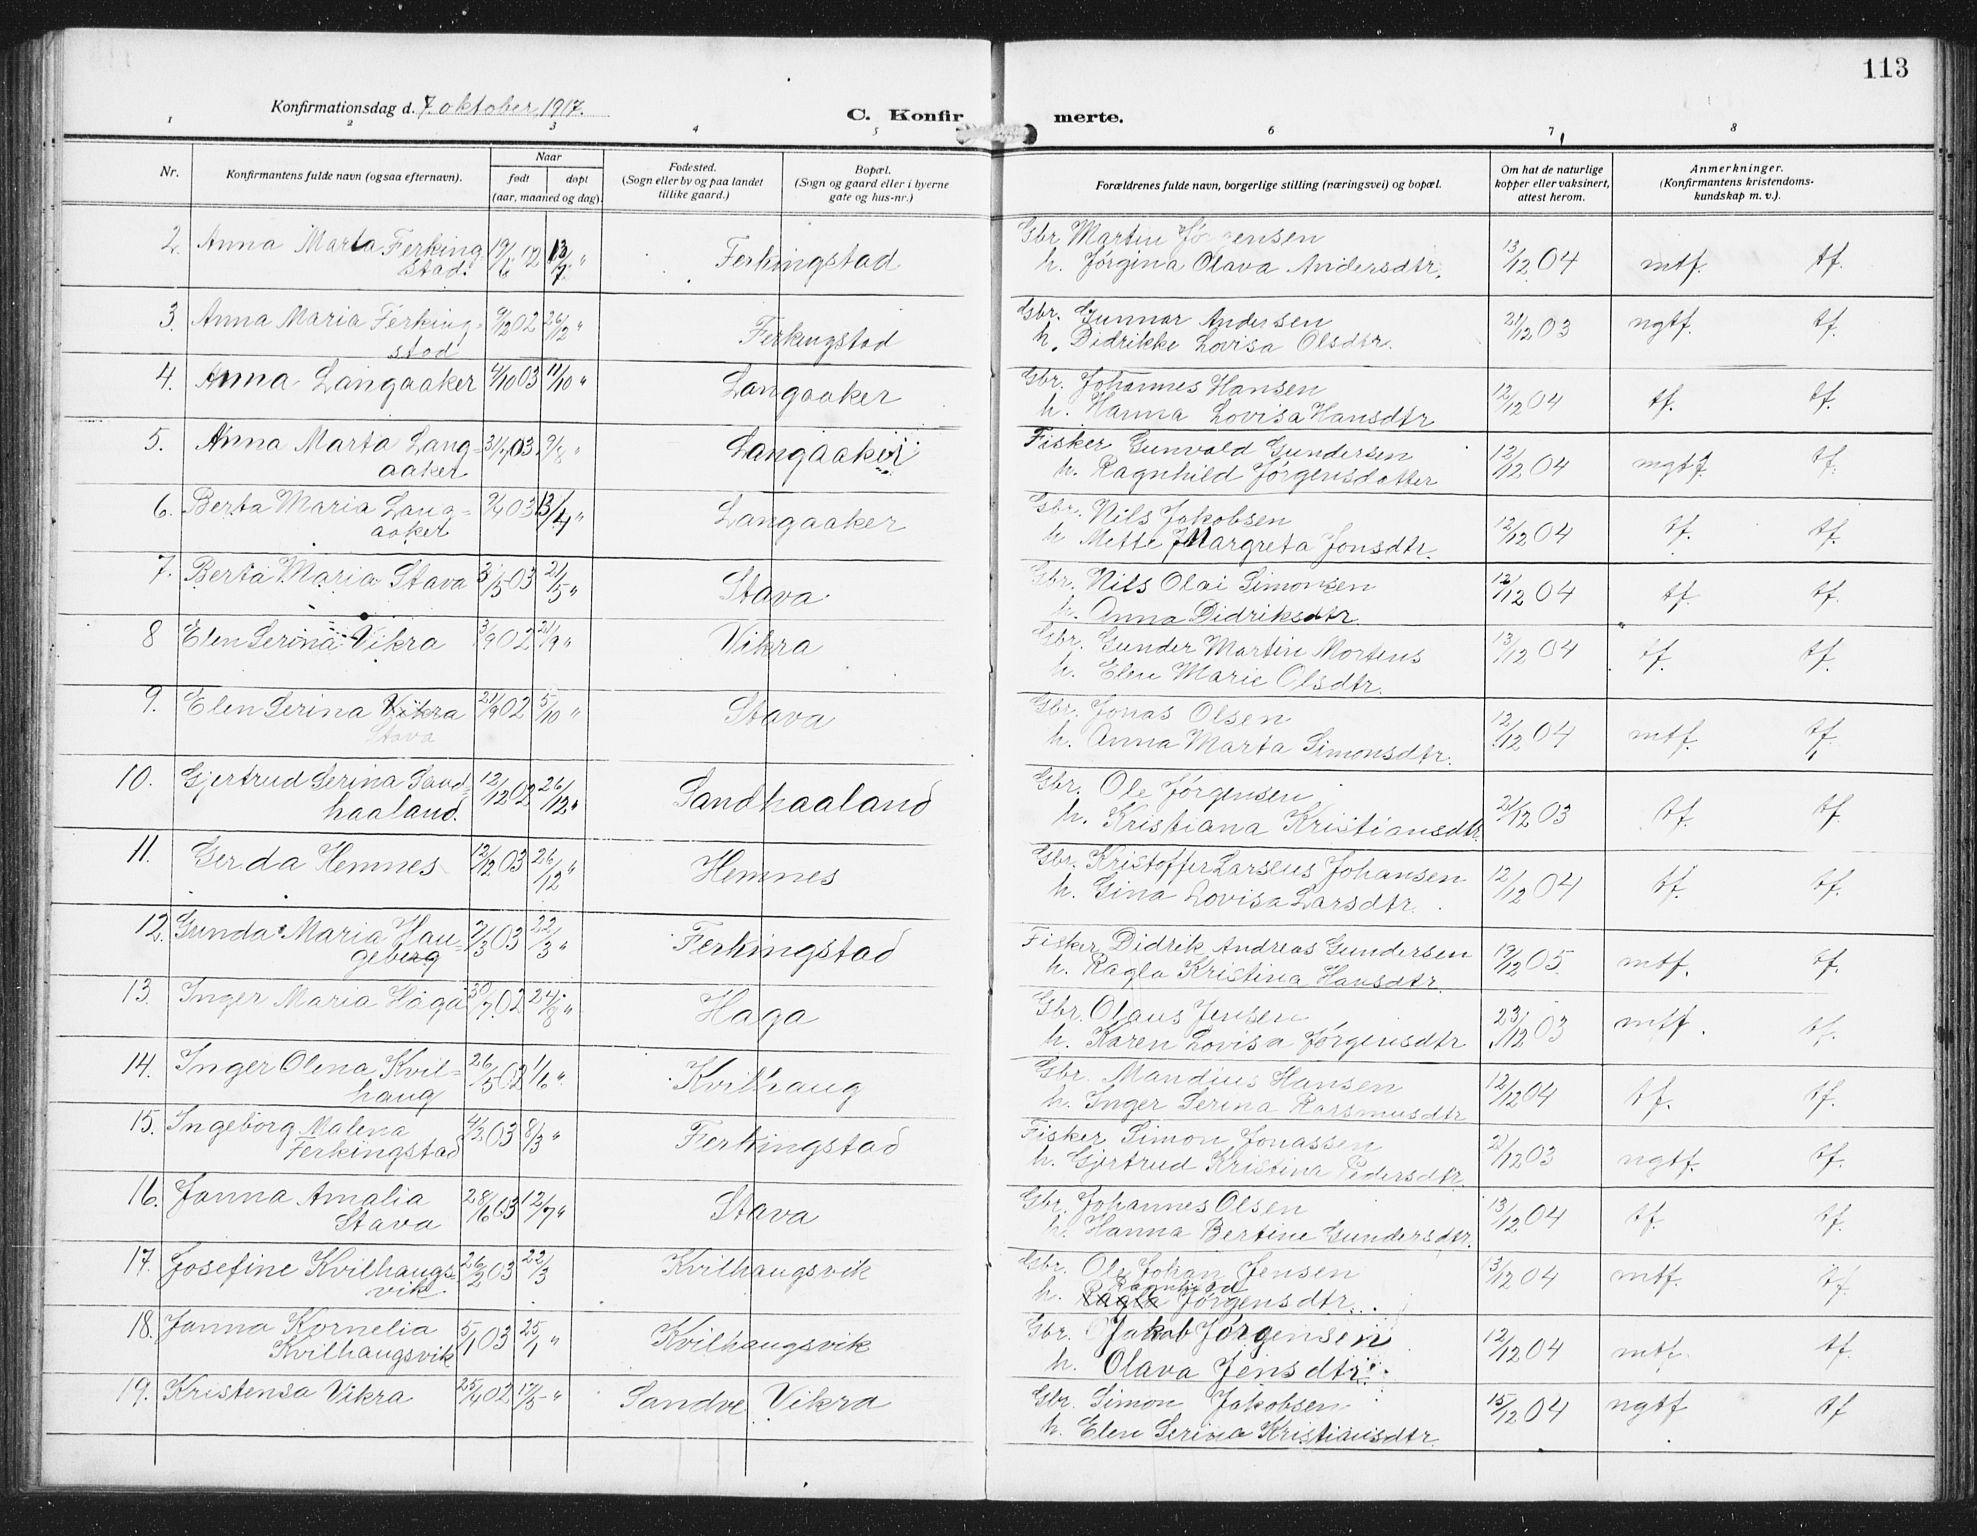 113
Konfirmationsdag d. 7. oktober 1917.
C. Konfirmerte.
1 2 3 4 5 6 7 8
Nr.
Konfirmantens fulde navn (ogsaa efternavn).
Naar
født døpt
(aar, maaned og dag).
Fødested.
(Sogn eller by og paa landet
tillike gaard.)
Bopæl.
(Sogn og gaard eller i byerne
gate og hus-nr.)
Forældrenes fulde navn, borgerlige stilling (næringsvei) og bopæl.
Om hat de naturlige
kopper eller vaksinert,
attest herom.
Anmerkninger.
(Konfirmantens kristendoms-
kundskap m. v.).
2. Anna Marta Ferking 19/6 02 13/7 " Ferkingstad Gbr. Martin Jørgensen 13/12 04 mtf. tf.
stad. h. Jørgina Olava Andersdtr.
3. Anna Maria Ferking- 9/12 02 26/12 " Ferkingstad Gbr. Gunnar Andersen 21/12 03 ngtf. tf.
stad h. Didrikke Lovisa Olsdtr.
4. Anna Langaaker 9/10 03 11/10 " Langaaker Gbr. Johannes Hansen 12/12 04 tf. tf.
h. Hanna Lovisa Hansdtr
5. Anna Marta Lang- 31/7 03 9/8 " Langaaker Fisker Gunvald Gundersen 12/12 04 mgtf. tf.
aaker h. Ragnhild Jørgensdatter
6. Berta Maria Lang- 9/4 03 13/4 " Langaaker Gbr. Nils Jakobsen 12/12 04 tf. tf.
aaker h. Mette Margreta Jonsdtr.
7. Berta Maria Stava 3/5 03 21/5 " Stava Gbr. Nils Olai Simonsen 12/12 04 tf. tf.
h. Anna Didriksdtr
8 Elen Serina Vikra 3/9 02 21/9 " Vikra Gbr. Gunder Martin Mortens 13/12 04 tf. tf.
h. Elen Marie Olsdtr.
9. Elen Serina Vikra 21/9 02 5/10 " Stava Gbr. Jonas Olsen 12/12 04 mtf. tf.
Stava h. Anna Marta Simonsdtr.
10. Gjertrud Serina Sand- 12/12 02 26/12 " Sandhaaland Gbr. Ole Jørgensen 21/12 03 tf. tf.
haaland. h. Kristiana Kristiansdtr.
11. Gerda Hemnes 12/12 03 26/12 " Hemnes Gbr. Kristoffer Larseus Johansen 12/12 04 tf. tf.
h. Gina Lovisa Larsdtr.
12. Gunda Maria Hau- 7/3 03 22/3 " Ferkingstad Fisker Didrik Andreas Gundersen 19/12 05. mtf. tf.
geberg h. Ragla Kristina Hansdtr.
13. Inger Maria Haga 30/7 02 24/8 " Haga Gbr. Olaus Jensen 23/12 03 mtf. tf.
h. Karen Lovisa Jørgensdtr
14. Inger Olena Kvil- 26/5 02 1/6 " Kvilhaug Gbr. Mandius Hansen 12/12 04 tf. tf.
haug h. Inger Serina Rasmusdtr
15. Ingeborg Malena 4/2 03 8/3 " Ferkingstad Fisker Simon Jonassen 21/12 03 ngtf. tf.
Ferkingstad h. Gjertrud Kristina Pedersdtr.
16. Janna Amalia 28/6 03 12/7 " Stava Gbr. Johannes Olsen 13/12 04 tf. tf.
Stava h. Hanna Bertine Gundersdtr.
17. Josefine Kvilhaugs- 26/2 03 22/3 Kvilhaugsvik Gbr. Ole Johan Jensen 13/12 04 mtf. tf.
vik Ragnhild
h. Ragla Jørgensdtr.
18. Janna Kornelia 5/1 03 25/1 " Kvilhaugsvik Gbr. Jakob Jørgensen 12/12 04 mtf. tf.
Kvilhaugsvik h. Olava Jensdtr.
19. Kristensa Vikra 25/4 02 17/5 " Sandve Vikra Gbr. Simon Jakobsen 15/12 04 ngtf tf
h. Elen Serina Kristiansdtr